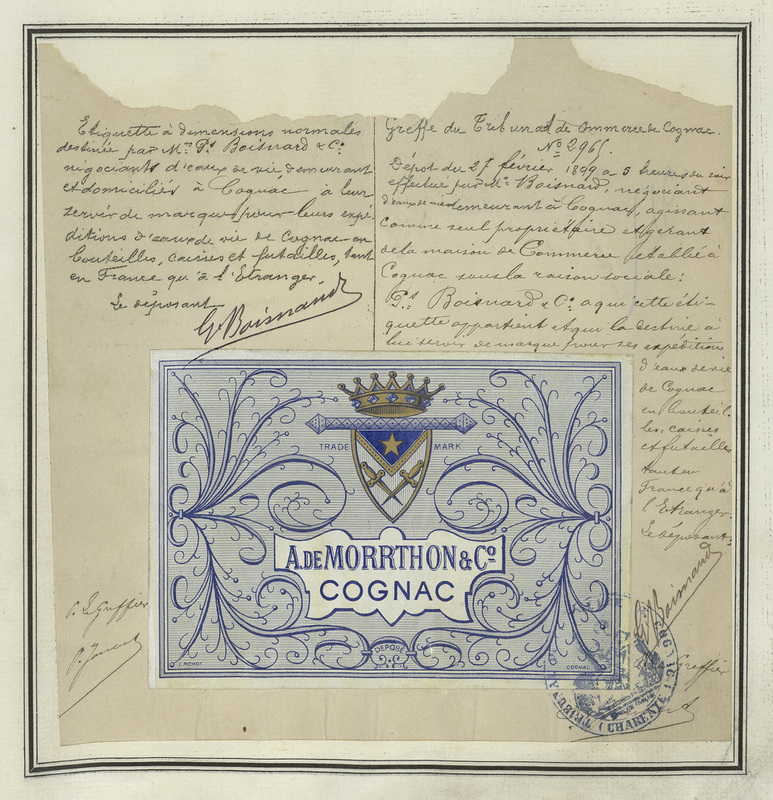 Etiquette à dimensions normales
destinée par Mrs Ps Boisnard & Co
négociants d'eaux de vie demeurant
et domiciliés à Cognac à leur
servir de marque pour leurs expé-
ditions d'eaux de vie de Cognac en
bouteilles, caisses et futailles, tant
en France qu'à l'Etranger
Le déposant
G. Boisnard
Greffe du Tribunal de Commerce de Cognac.
No 296
Dépôt du 27 février 1899 à 5 heures du soir
effectué par Mr Boisnard, négociant
d'eaux de vie demeurant à Cognac, agissant
comme seul propriétaire et gérant
de la maison de Commerce établie à
Cognac sous la raison sociale:
Ps Boisnard & Co a qui cette éti-
quette appartient et qui la destine à
lui servir de marque pour ses expéditions
d'eaux de vie
de Cognac
en bouteil-
les, caisses
et futailles
tant en
France qu'à
l'Etranger.
Le déposant
G. Boisnard
TRADE MARK
A. DE MORRTHON & Co
COGNAC
DÉPOSÉ
COGNAC
P. Le Greffier
Le Greffier
TRIBUNAL
COGNAC
(CHARENTE)